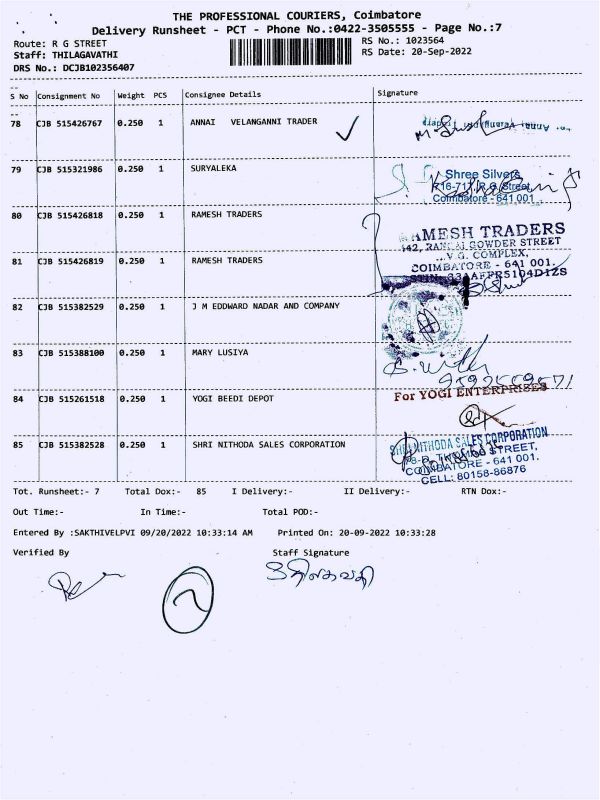 THE PROFESSIONAL COURIERS, Coimbatore
Delivery Runsheet - PCT - Phone No.:0422-3505555 - Page No.:7
Route: R G STREET
RS No.: 1023564
Staff: THILAGAVATHI
RS Date: 20-Sep-2022
DRS No.: DCJB102356407
S No Consignment No Weight PCS Consignee Details Signature
78 CJB 515426767 0.250 1 ANNAI VELANGANNI TRADER
79 CJB 515321986 0.250 1 SURYALEKA
Shree Silvers
R.G. Street,
Coimbatore - 641 001
80 CJB 515426818 0.250 1 RAMESH TRADERS
RAMESH TRADERS
GOWDER STREET
V.G. COMPLEX,
81 CJB 515426819 0.250 1 RAMESH TRADERS
COIMBATORE - 641 001.
82 CJB 515382529 0.250 1 J M EDDWARD NADAR AND COMPANY
83 CJB 515388100 0.250 1 MARY LUSIYA
84 CJB 515261518 0.250 1 YOGI BEEDI DEPOT
For YOGI ENTERPRISES
85 CJB 515382528 0.250 1 SHRI NITHODA SALES CORPORATION
SHRI NITHODA SALES CORPORATION
STREET,
COIMBATORE - 641 001.
CELL: 80158-86876
Tot. Runsheet:- 7 Total Dox:- 85 I Delivery:- II Delivery:- RTN Dox:-
Out Time:- In Time:- Total POD:-
Entered By :SAKTHIVELPVI 09/20/2022 10:33:14 AM Printed On: 20-09-2022 10:33:28
Verified By Staff Signature